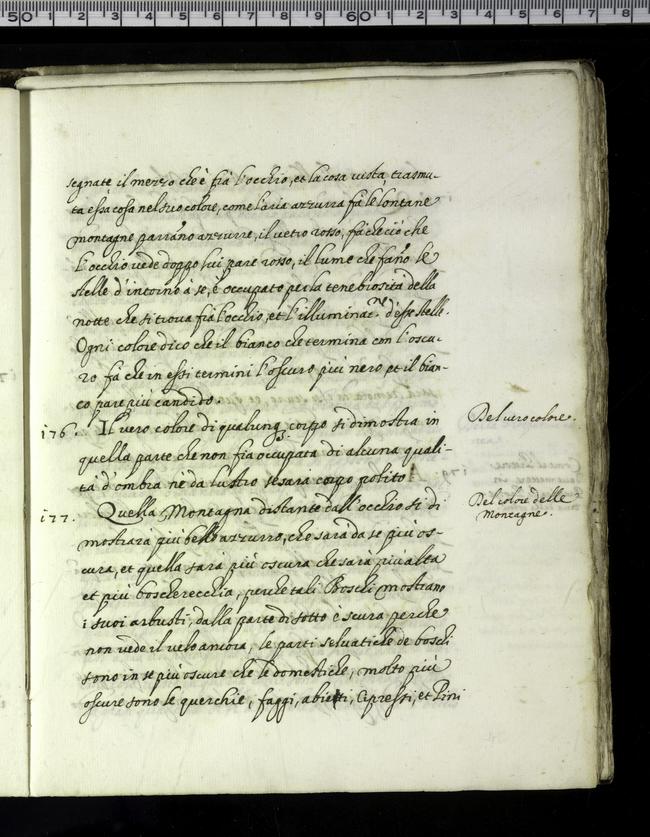 segnate il mezzo che è frà l'occhio, et la cosa uista, trasmu-
ta essa cosa nel suo colore, come l'aria azzurra fa le lontane
montagne parranno azzurre, il uetro rosso, fa che ciò che
l'occhio uede doppo lui pare rosso, il lume che fanno le
stelle d'intorno à se, è occupato per la tenebiosità della
notte che si troua frà l'occhio, et l'illuminac.ne d'esse stelle.
Ogni colore dico che il bianco che termina con l'oscu-
ro fà che in essi termini l'oscuro più nero, et il bian-
co pare più candido.
176. Il uero colore di qualunq. corpo si dimostra in
Del uero colore.
quella parte che non fia occupata di alcuna quali-
tà d'ombra nè da lustro se sarà corpo polito
177. Quella Montagna distante dall'occhio si di
Del colore delle
Montagne.
mostrara più bello azzurro, che sarà da se più os-
cura, et quella sarà più oscura che sarà più alta
et più boscherecchia, perche tali Boschi mostrano
i suoi arbusti, dalla parte di sotto è scura perche
non uede il uelo ancora, le parti seluatiche de boschi
sono in se più oscure che le domestiche, molto più
oscure sono le querchie, faggi, abietti, Cipressi, et Pini